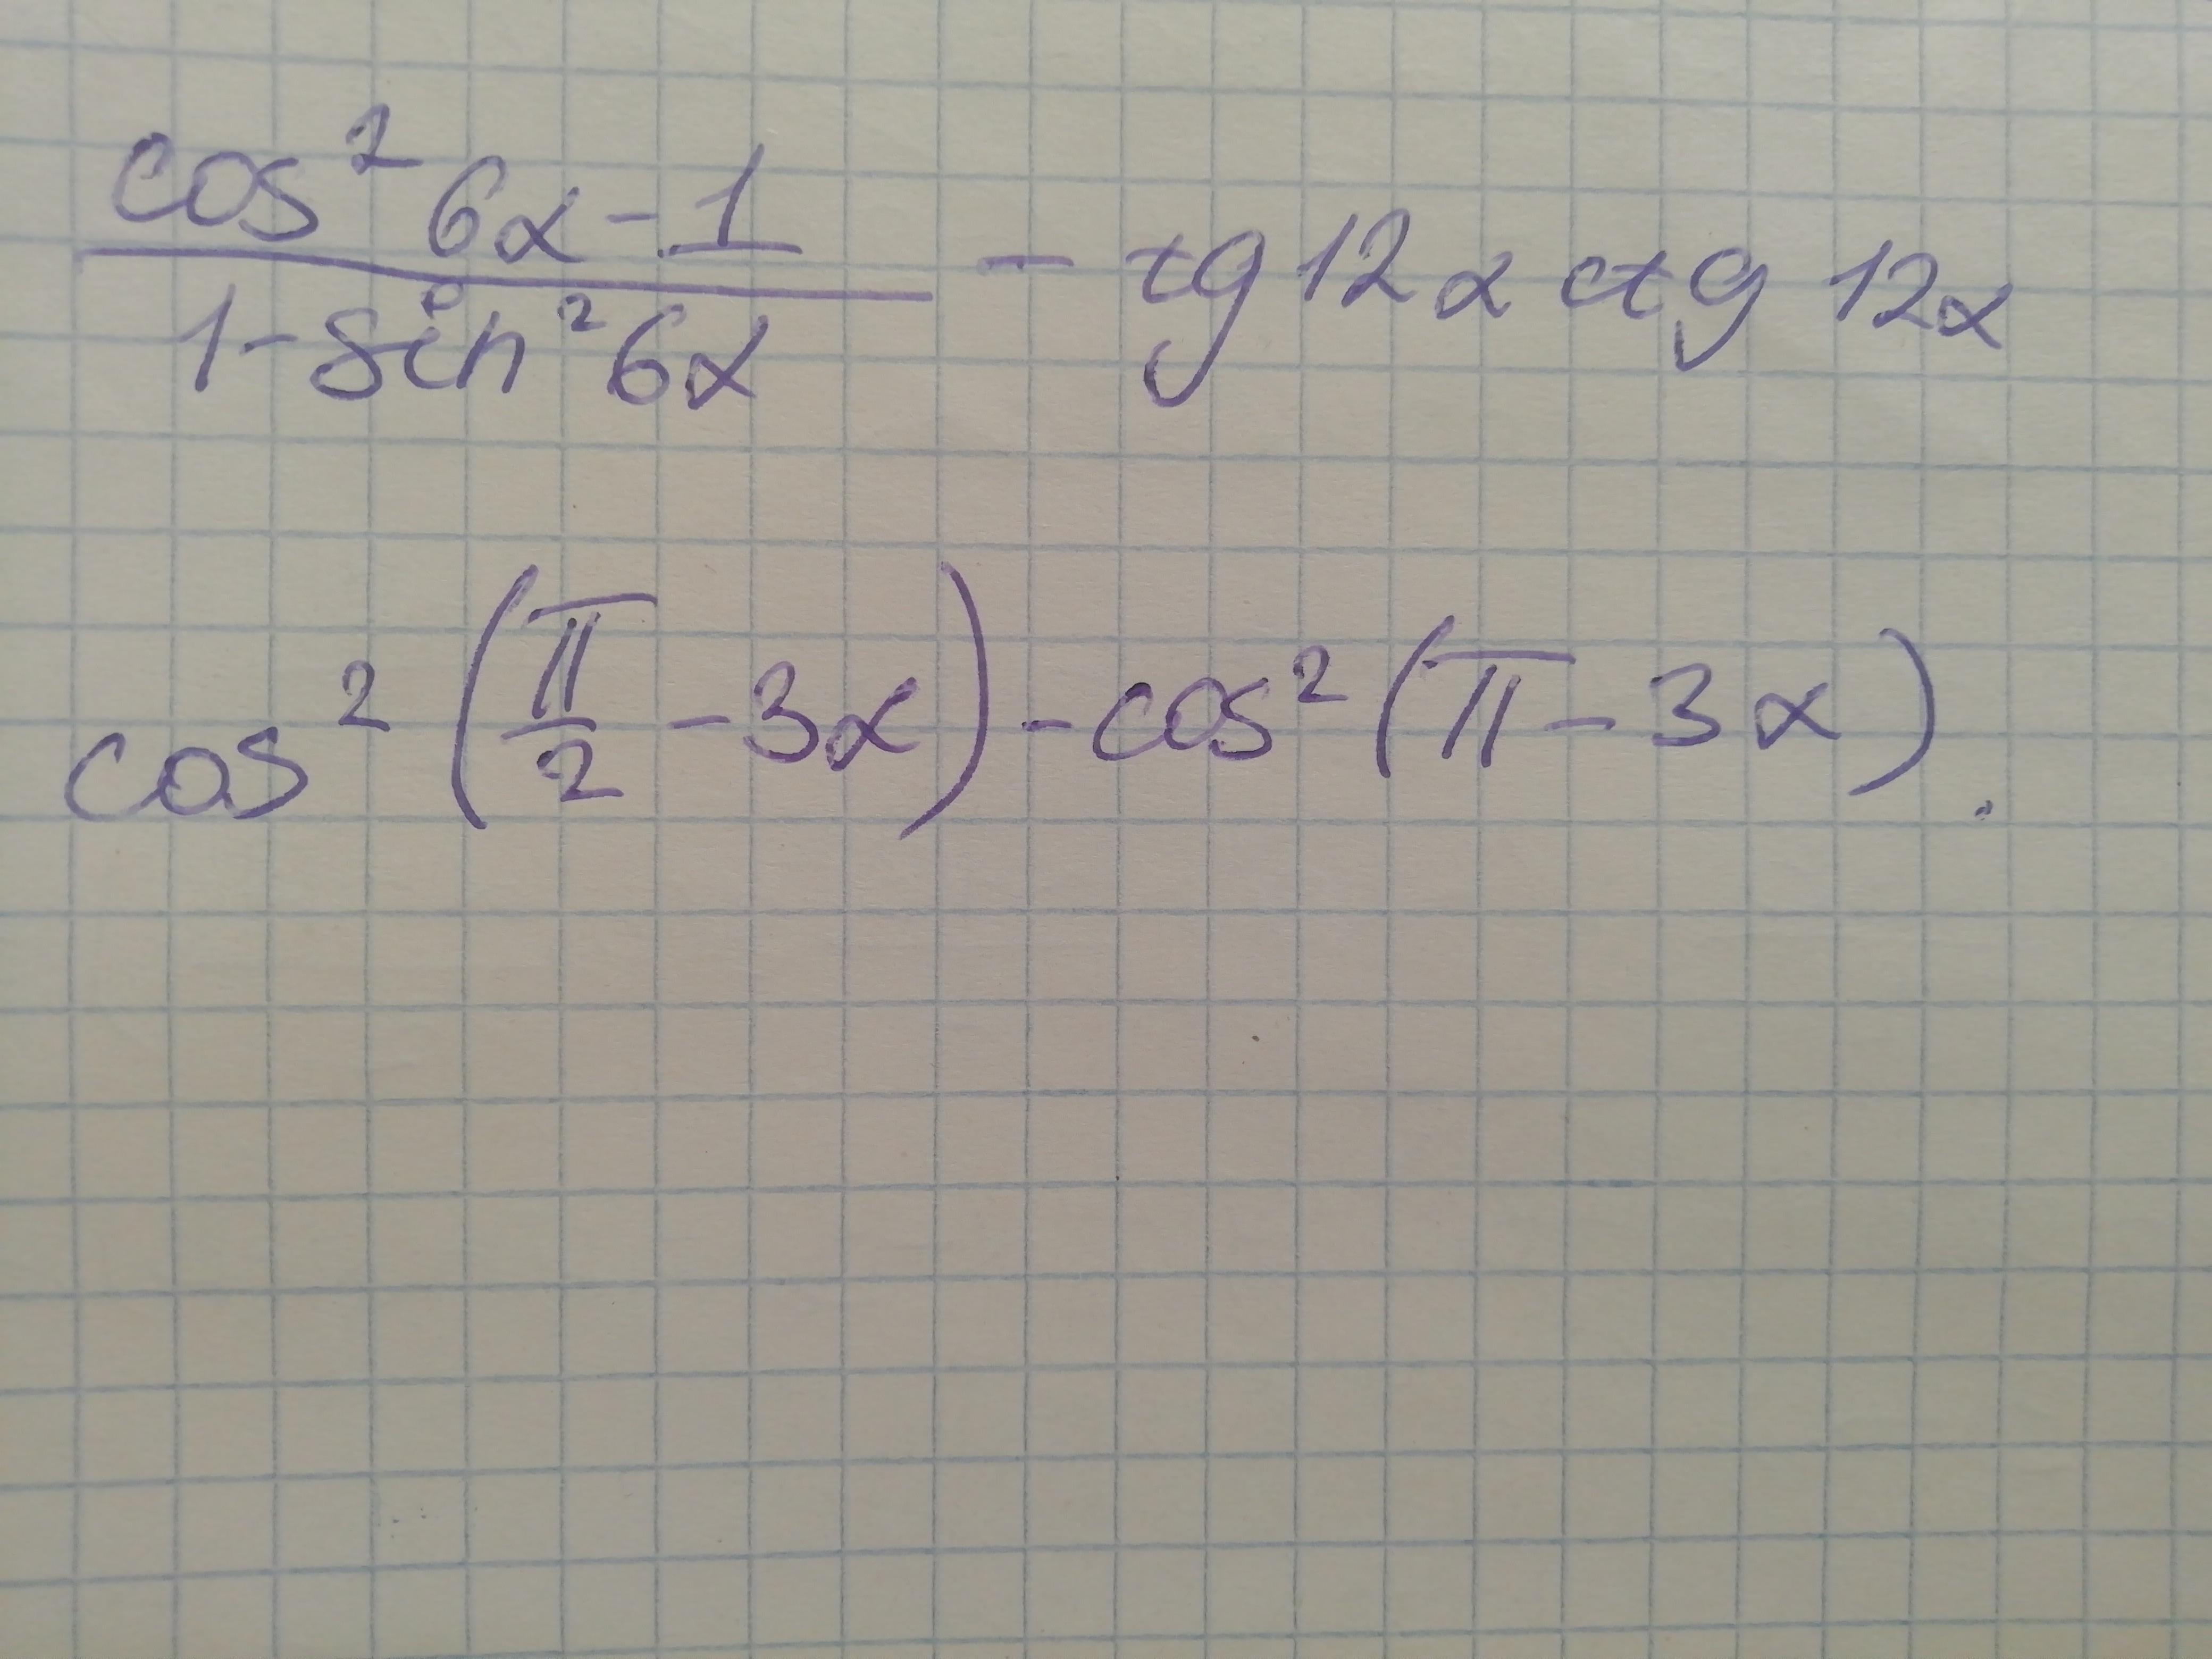 cos² 6α - 1 / 1 - sin² 6α - tg 12α ctg 12α
cos² (π/2 - 3α) - cos² (π - 3α).